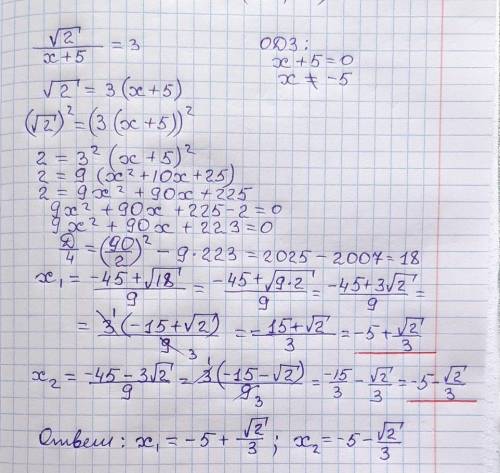 √2 / (x+5) = 3
ОДЗ:
x+5=0
x≠-5
√2 = 3(x+5)
(√2)² = (3(x+5))²
2 = 3²(x+5)²
2 = 9(x²+10x+25)
2 = 9x²+90x+225
9x²+90x+225-2=0
9x²+90x+223=0
D/4 = (90/2)² - 9·223 = 2025-2007=18
x₁ = (-45+√18)/9 = (-45+√(9·2))/9 = (-45+3√2)/9 =
= 3¹(-15+√2)/9₃ = (-15+√2)/3 = -5+√2/3
x₂ = (-45-3√2)/9 = 3¹(-15-√2)/9₃ = -15/3 - √2/3 = -5-√2/3
Ответ: x₁ = -5+√2/3; x₂ = -5-√2/3